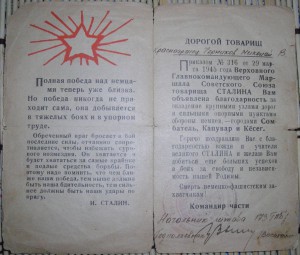 Полная победа над немцами теперь уже близка.
Но победа никогда не приходит сама, она добывается
в тяжелых боях и в упорном
труде.
Обреченный враг бросает в бой
последние силы, отчаянно сопротивляется, чтобы избежать сурового возмездия. Он хватается и
будет хвататься за самые крайние
и подлые средства борьбы. Поэтому надо помнить, что чем ближе наша победа, тем выше должна
быть наша бдительность, тем сильнее должны быть наши удары по
врагу.
И. СТАЛИН.
ДОРОГОЙ ТОВАРИЩ
Приказом № 316 от 30 марта 1945 года Верховного
Главнокомандующего Маршала Советского Союза
товарища СТАЛИНА Вам
объявлена благодарность за
овладение
важными опорными пунктами
обороны немцев — городами Сомбатель, Капувар и Кёсег.
благодарностью вождя и учителя
великого СТАЛИНА и желаю Вам
еще больших успехов в
боях за свободу и независимость нашей Родины.
Смерть немецко-фашистским захватчикам!
Командир части